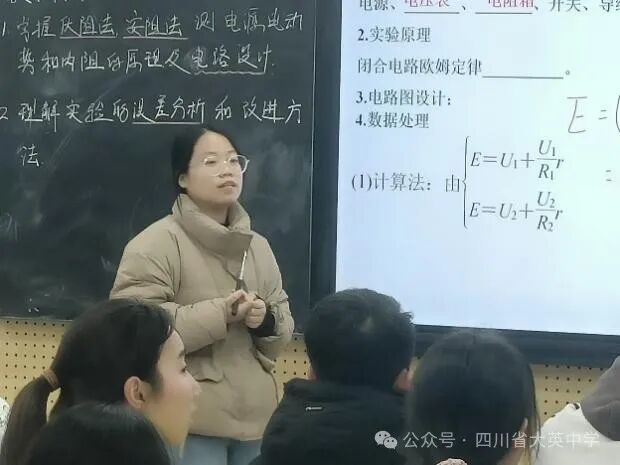 1.掌握伏阻法,安阻法 测电源电动
势和内阻的原理及电路设计.
2.理解实验的误差分析和改进方
法.
电源、电压表、电阻箱、开关、导线
2.实验原理
闭合电路欧姆定律________。
3.电路图设计:
4.数据处理
(1)计算法:由
E=U₁+U₁/R₁r
E=U₂+U₂/R₂r
E=
=
公众号·四川省大英中学